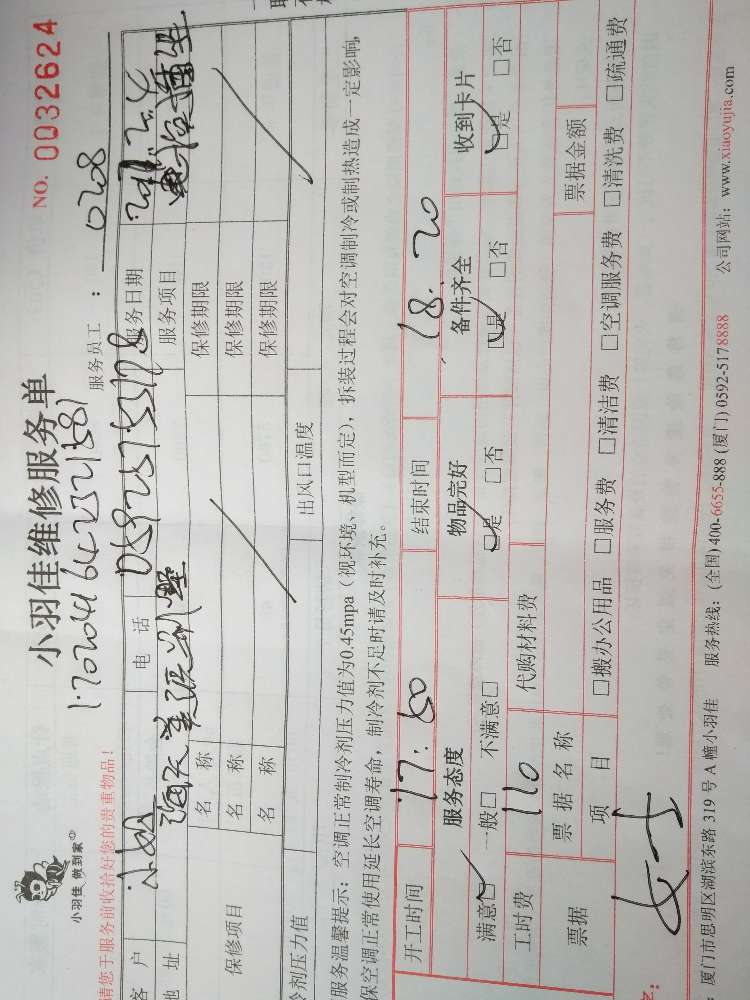 小羽佳 做到家
小羽佳维修服务单
NO. 0032624
请您于服务前收拾好您的贵重物品！
服务员工：
028
客 户
电 话
服务日期
地 址
服务项目
保修项目
名 称
保修期限
名 称
保修期限
名 称
保修期限
冷剂压力值
出风口温度
服务温馨提示：空调正常制冷剂压力值为0.45mpa（视环境、机型而定），拆装过程会对空调制冷或制热造成一定影响，
保空调正常使用延长空调寿命，制冷剂不足时请及时补充。
开工时间
17:50
结束时间
18.20
服务态度
物品完好
备件齐全
收到卡片
满意□ 一般□ 不满意□
□是 □否
□是 □否
□是 □否
工时费
110
代购材料费
票据
票 据 名 称
票据金额
项 目
□搬办公用品 □服务费 □清洁费 □空调服务费 □清洗费 □疏通费
女士
：厦门市思明区湖滨东路 319 号 A 幢小羽佳 服务热线：(全国) 400-6655-888 (厦门) 0592-5178888 公司网站：www.xiaoyujia.com